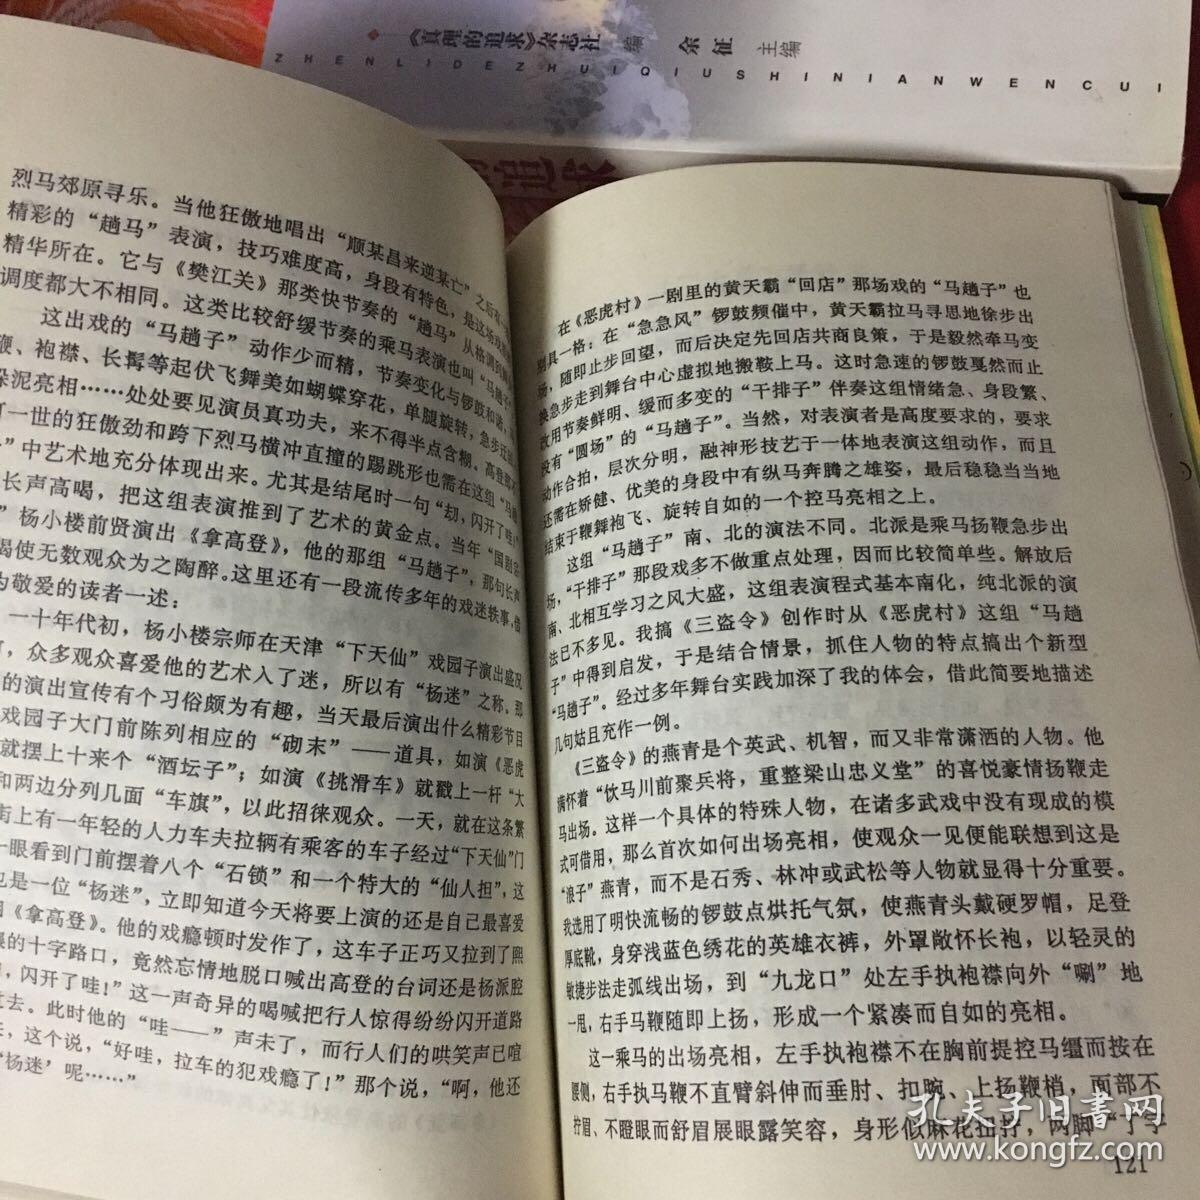 《真理的追求》杂志社 编 余 征 主编
ZHENLIDEZHUIQIUSHINIANWENCUI
烈马郊原寻乐。当他狂傲地唱出“顺某昌来逆某亡”之后
精彩的“趟马”表演，技巧难度高，身段有特色，是这场戏
精华所在。它与《樊江关》那类快节奏的“趟马”从格调到
调度都大不相同。这类比较舒缓节奏的乘马表演也叫“马趟子”
这出戏的“马趟子”动作少而精，节奏变化与锣鼓和谐，
鞭、袍襟、长髯等起伏飞舞美如蝴蝶穿花，单腿旋转，急步
泥亮相……处处要见演员真功夫，来不得半点含糊。高登那不
一世的狂傲劲和跨下烈马横冲直撞的踢跳形也需在这组“马趟
”中艺术地充分体现出来。尤其是结尾时一句“刼，闪开了哇！”
长声高喝，把这组表演推到了艺术的黄金点。当年“国剧宗
”杨小楼前贤演出《拿高登》，他的那组“马趟子”，那句长声
喝使无数观众为之陶醉。这里还有一段流传多年的戏迷轶事，借
为敬爱的读者一述：
一十年代初，杨小楼宗师在天津“下天仙”戏园子演出盛况
，众多观众喜爱他的艺术入了迷，所以有“杨迷”之称。那
的演出宣传有个习俗颇为有趣，当天最后演出什么精彩节目
戏园子大门前陈列相应的“砌末”——道具，如演《恶虎
就摆上十来个“酒坛子”；如演《挑滑车》就戳上一杆“大
和两边分列几面“车旗”，以此招徕观众。一天，就在这条繁
街上有一年轻的人力车夫拉辆有乘客的车子经过“下天仙”门
一眼看到门前摆着八个“石锁”和一个特大的“仙人担”，这
也是一位“杨迷”，立即知道今天将要上演的还是自己最喜爱
《拿高登》。他的戏瘾顿时发作了，这车子正巧又拉到了熙
的十字路口，竟然忘情地脱口喊出高登的台词还是杨派腔
，闪开了哇！”这一声奇异的喝喊把行人惊得纷纷闪开道路
过去。此时他的“哇——”声未了，而行人们的哄笑声已喧
，这个说，“好哇，拉车的犯戏瘾了！”那个说，“啊，他还
‘杨迷’呢……”
在《恶虎村》一剧里的黄天霸“回店”那场戏的“马趟子”也
别具一格：在“急急风”锣鼓频催中，黄天霸拉马寻思地徐步出
场，随即止步回望，而后决定先回店共商良策，于是毅然牵马变
换急步走到舞台中心虚拟地搬鞍上马。这时急速的锣鼓戛然而止
改用节奏鲜明、缓而多变的“干排子”伴奏这组情绪急、身段繁、
没有“圆场”的“马趟子”。当然，对表演者是高度要求的，要求
动作合拍，层次分明，融神形技艺于一体地表演这组动作，而且
还需在矫健、优美的身段中有纵马奔腾之雄姿，最后稳稳当当地
结束于鞭舞袍飞、旋转自如的一个控马亮相之上。
这组“马趟子”南、北的演法不同。北派是乘马扬鞭急步出
场，“干排子”那段戏多不做重点处理，因而比较简单些。解放后
南、北相互学习之风大盛，这组表演程式基本南化，纯北派的演
法已不多见。我搞《三盗令》创作时从《恶虎村》这组“马趟
子”中得到启发，于是结合情景，抓住人物的特点搞出个新型
“马趟子”。经过多年舞台实践加深了我的体会，借此简要地描述
几句姑且充作一例。
《三盗令》的燕青是个英武、机智，而又非常潇洒的人物。他
满怀着“饮马川前聚兵将，重整梁山忠义堂”的喜悦豪情扬鞭走
马出场。这样一个具体的特殊人物，在诸多武戏中没有现成的模
式可借用，那么首次如何出场亮相，使观众一见便能联想到这是
“浪子”燕青，而不是石秀、林冲或武松等人物就显得十分重要。
我选用了明快流畅的锣鼓点烘托气氛，使燕青头戴硬罗帽，足登
厚底靴，身穿浅蓝色绣花的英雄衣裤，外罩敞怀长袍，以轻灵的
敏捷步法走弧线出场，到“九龙口”处左手执袍襟向外“唰”地
一甩，右手马鞭随即上扬，形成一个紧凑而自如的亮相。
这一乘马的出场亮相，左手执袍襟不在胸前提控马缰而按在
腰侧，右手执马鞭不直臂斜伸而垂肘、扣腕、上扬鞭梢，面部不
拧眉、不瞪眼而舒眉展眼露笑容，身形似麻花扭拧，两脚“丁字
121
孔夫子旧书网
www.kongfz.com